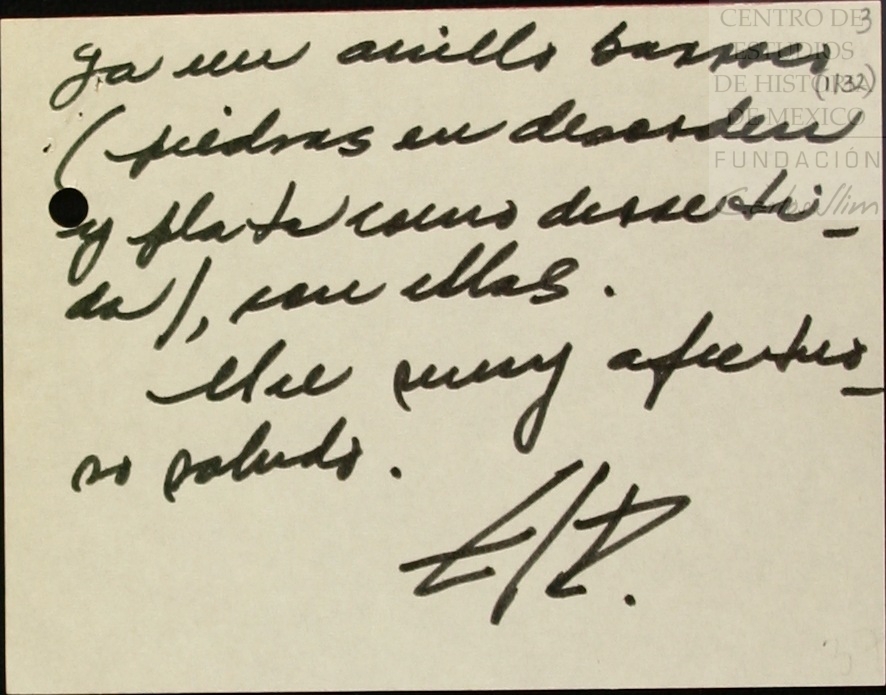 CENTRO DE
ESTUDIOS
DE HISTORIA
DE MEXICO
FUNDACIÓN
Carlos Slim
3
(1132)
ga un anillo barroco
(piedras en desorden
y plata como
da), con ellas.
Un muy afectuo-
so saludo.